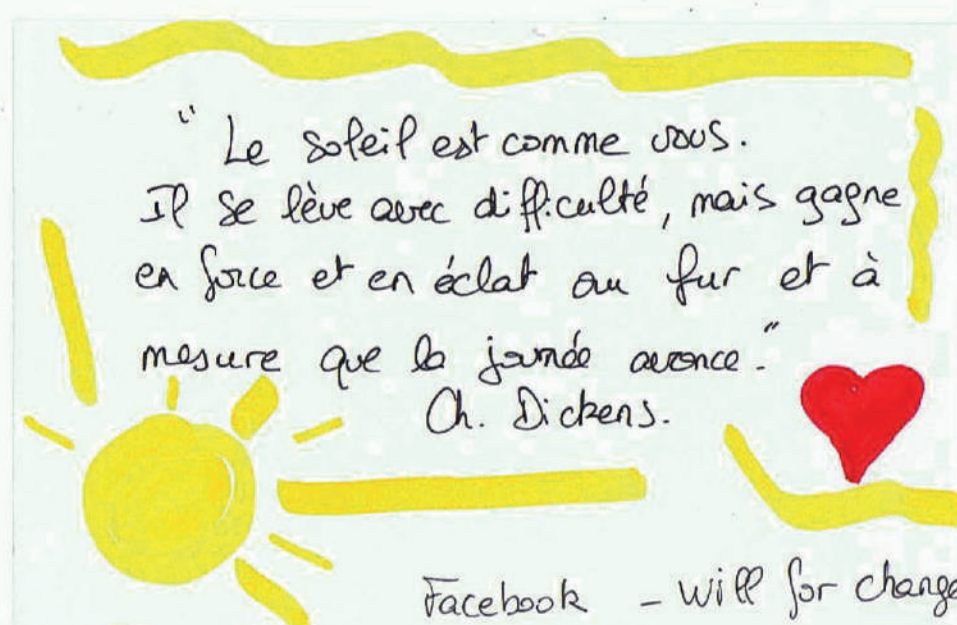 " Le soleil est comme vous.
Il se lève avec difficulté, mais gagne
en force et en éclat au fur et à
mesure que la journée avance."
Ch. Dickens.
Facebook - Will for change